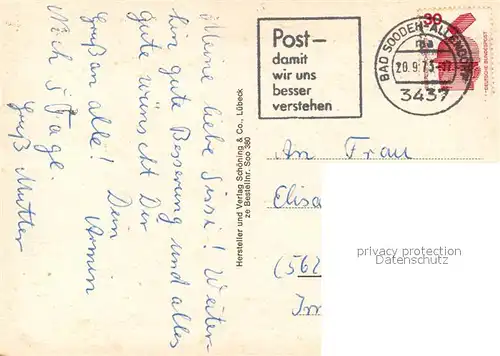 Meine liebe Sissi! Weiter-
hin gute Besserung und alles
Gute wünscht Dir
Dein
Armin
Grüßen an alle!
Noch 5 Tage
Gruß Mutter
Hersteller und Verlag Schöning & Co., Lübeck
ze Bestellnr. Soo 380
Post–
damit
wir uns
besser
verstehen
BAD SOODEN-ALLENDORF
20.9.73
3437
30
DEUTSCHE BUNDESPOST
An Frau
Elisa
(562
privacy protection
Datenschutz